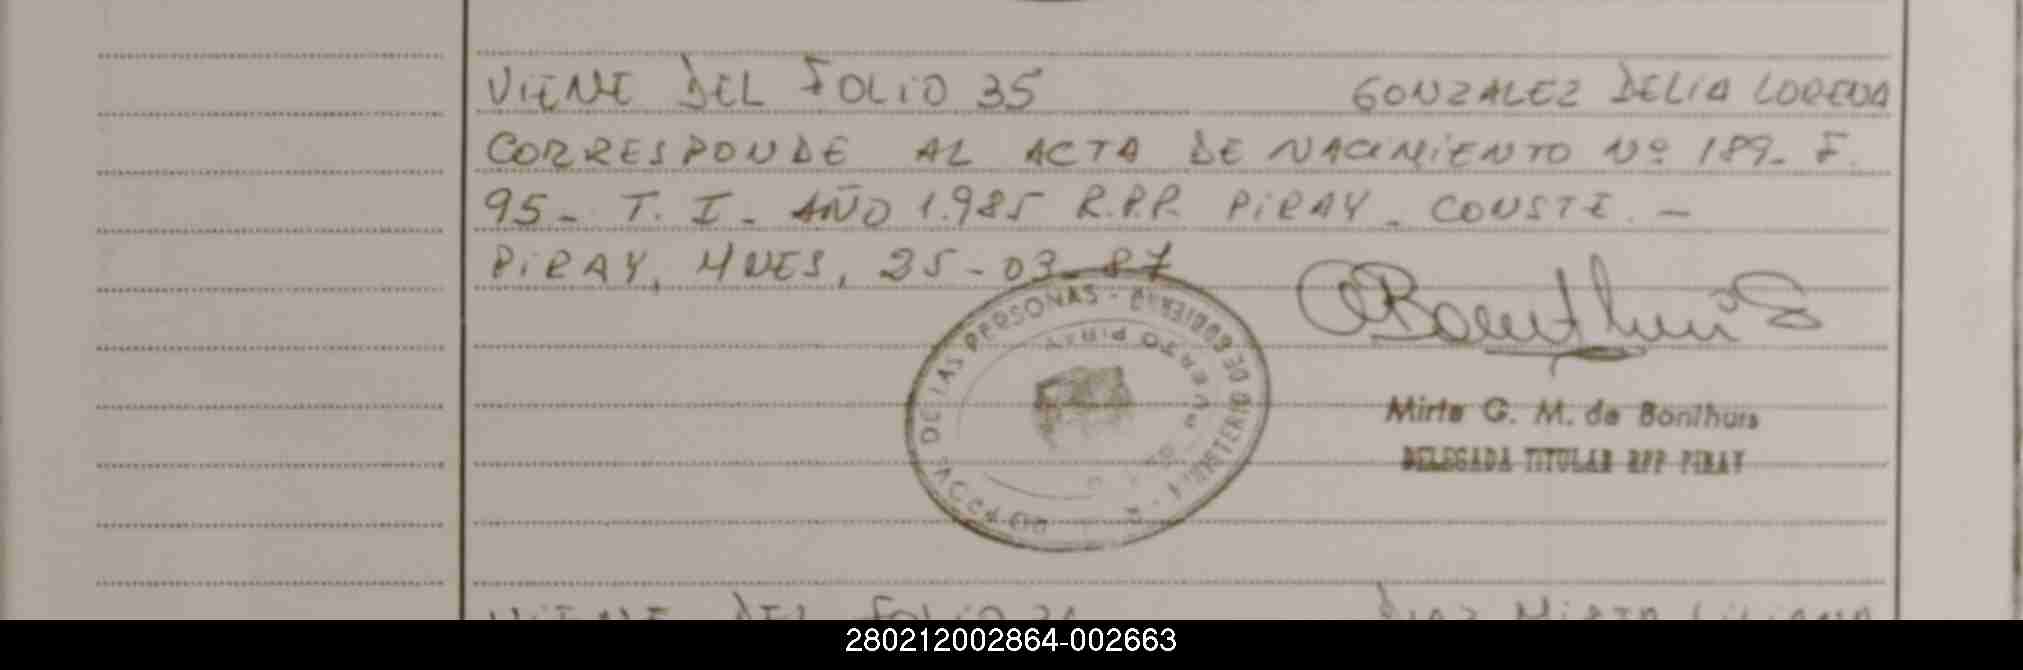 VIENE DEL FOLIO 35 GONZALEZ DELIA LORENA
CORRESPONDE AL ACTA DE NACIMIENTO Nº 189- F.
95- T. I- AÑO 1.985 R.P.P. PIRAY- CONSTE. -
PIRAY, MNES, 25-03-87
DE LAS PERSONAS - MINISTERIO DE GOBIERNO
PIRAY
Mirta G. M. de Bonthuis
DELEGADA TITULAR RPP PIRAY
VIENE DEL FOLIO
280212002864-002663